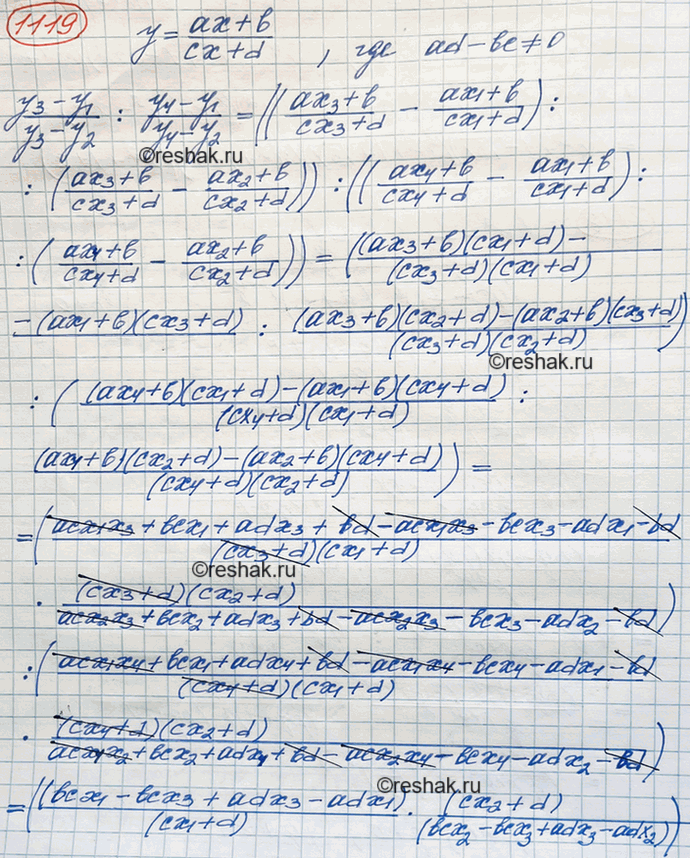 1119
y = (ax+b)/(cx+d) , где ad-bc≠0
(y₃-y₁)/(y₃-y₂) : (y₄-y₁)/(y₄-y₂) = (((ax₃+b)/(cx₃+d) - (ax₁+b)/(cx₁+d)) :
©reshak.ru
: ((ax₃+b)/(cx₃+d) - (ax₂+b)/(cx₂+d))) : (((ax₄+b)/(cx₄+d) - (ax₁+b)/(cx₁+d)) :
: ((ax₄+b)/(cx₄+d) - (ax₂+b)/(cx₂+d))) = (((ax₃+b)(cx₁+d) -)/((cx₃+d)(cx₁+d))
-(ax₁+b)(cx₃+d) : ((ax₃+b)(cx₂+d)-(ax₂+b)(cx₃+d))/((cx₃+d)(cx₂+d)))
©reshak.ru
: (((ax₄+b)(cx₁+d)-(ax₁+b)(cx₄+d))/((cx₄+d)(cx₁+d)) :
((ax₄+b)(cx₂+d)-(ax₂+b)(cx₄+d))/((cx₄+d)(cx₂+d))) =
= ((acx₁x₃+bcx₁+adx₃+bd-acx₁x₃-bcx₃-adx₁-bd)/((cx₃+d)(cx₁+d))
©reshak.ru
· ((cx₃+d)(cx₂+d))/(acx₂x₃+bcx₂+adx₃+bd-acx₂x₃-bcx₃-adx₂-bd))
: ((acx₁x₄+bcx₁+adx₄+bd-acx₁x₄-bcx₄-adx₁-bd)/((cx₄+d)(cx₁+d))
· ((cx₄+d)(cx₂+d))/(acx₄x₂+bcx₂+adx₄+bd-acx₂x₄-bcx₄-adx₂-bd))
= (((bcx₁-bcx₃+adx₃-adx₁)/(cx₁+d)) · (cx₂+d)/(bcx₂-bcx₃+adx₃-adx₂))
©reshak.ru